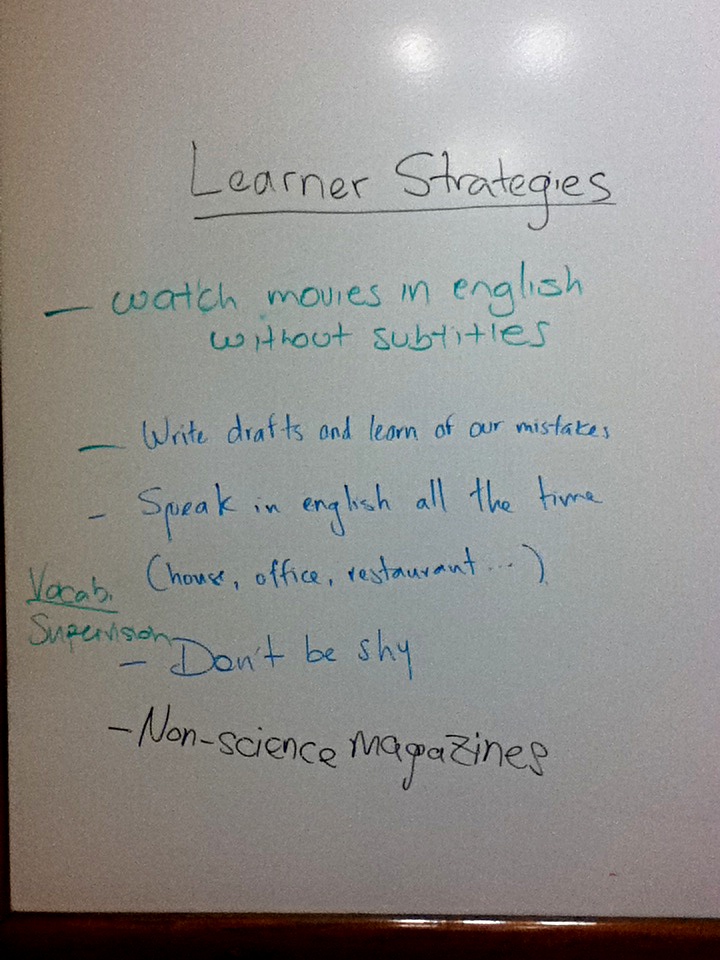 Learner Strategies
— watch movies in english
without subtitles
— Write drafts and learn of our mistakes
- Speak in english all the time
(house, office, restaurant...)
Vocab.
Supervision
- Don't be shy
- Non-science magazines